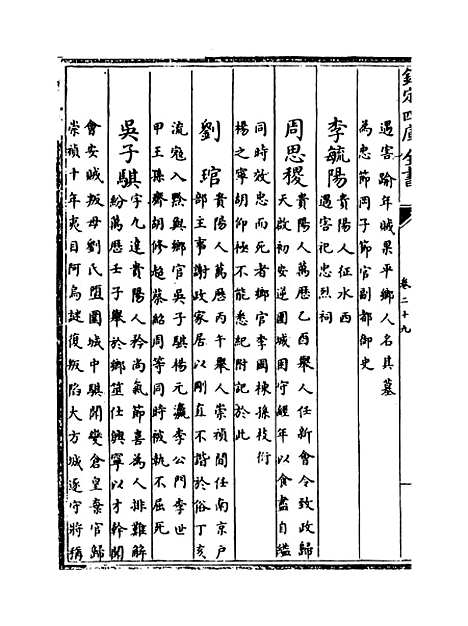 欽定四庫全書
卷二十九
遇害踰年賊果平鄉人名其墓
為忠節岡子節官副都御史
李毓陽貴陽人征水西
遇害祀忠烈祠
周思稷貴陽人萬歷乙酉舉人任新會令致政歸
天啟初安逆圍城固守經年以食盡自縊
同時效忠而死者鄉官李圖棟孫枝衍
楊之寧胡仰極不能悉紀附記於此
劉琯貴陽人萬歷丙午舉人崇禎間任南京户
部主事謝政家居以剛直不諧於俗丁亥
流寇入黔與鄉官吳子騏楊元瀛李公門李世
甲王孫齋胡修趙蔡紹周等同時被執不屈死
吳子騏字九逵貴陽人矜尚氣節喜為人排難解
紛萬歷壬子舉於鄉筮仕興寧以才幹聞
會安賊叛母劉氏罹圍城中騏聞變倉皇棄官歸
崇禎十年夷目阿烏謎復叛陷大方城逐守將稱